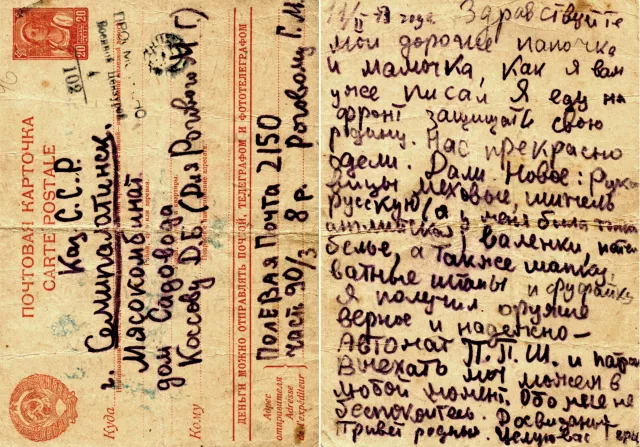 ПОЧТОВАЯ КАРТОЧКА
CARTE POSTALE
20 20
102
Каз С.С.Р.
г. Семипалатинск.
Мясокомбинат
дом Садовода
Косову Д.Б. (для Рогового Г)
Куда
Кому
ДЕНЬГИ МОЖНО ОТПРАВЛЯТЬ ПОЧТОЙ, ТЕЛЕГРАФОМ И ФОТОТЕЛЕГРАФОМ
Адрес отправителя
Adresse de l'expéditeur
ПОЛЕВАЯ Почта 2150
часть 90/3 8 р. Роговому Г.М.
43 года Здравствуйте
мои дорогие папочка
и мамочка, Как я вам
уже писал Я еду на
фронт защищать свою
родину. Нас прекрасно
одели. Дали Новое: Рука
вицы меховые, шинель
русскую (а у меня была
английская), валенки,
белье, а также шапку,
ватные штаны и фуфайку
Я получил оружие
верное и надежно-
Автомат П.П.Ш. и патро
Выехать мы можем в
любой момент. Обо мне не
беспокойтесь. Досвидания
Привет родным Целую вас